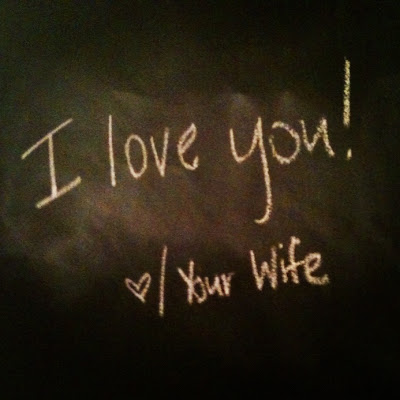 I love you!
♡/ Your Wife